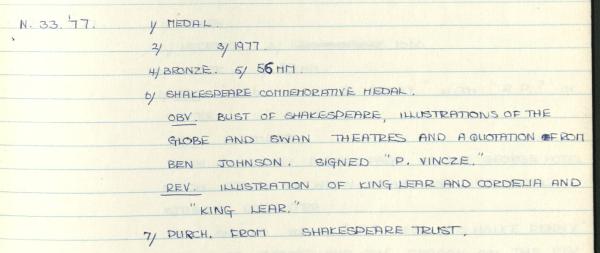 N. 33. '77. 1/ MEDAL.
2/ 3/ 1977.
4/ BRONZE. 5/ 56 MM.
6/ SHAKESPEARE COMMEMORATIVE MEDAL.
OBV. BUST OF SHAKESPEARE, ILLUSTRATIONS OF THE
GLOBE AND SWAN THEATRES AND A QUOTATION FROM
BEN JOHNSON. SIGNED "P. VINCZE."
REV. ILLUSTRATION OF KING LEAR AND CORDELIA AND
"KING LEAR."
7/ PURCH. FROM SHAKESPEARE TRUST.